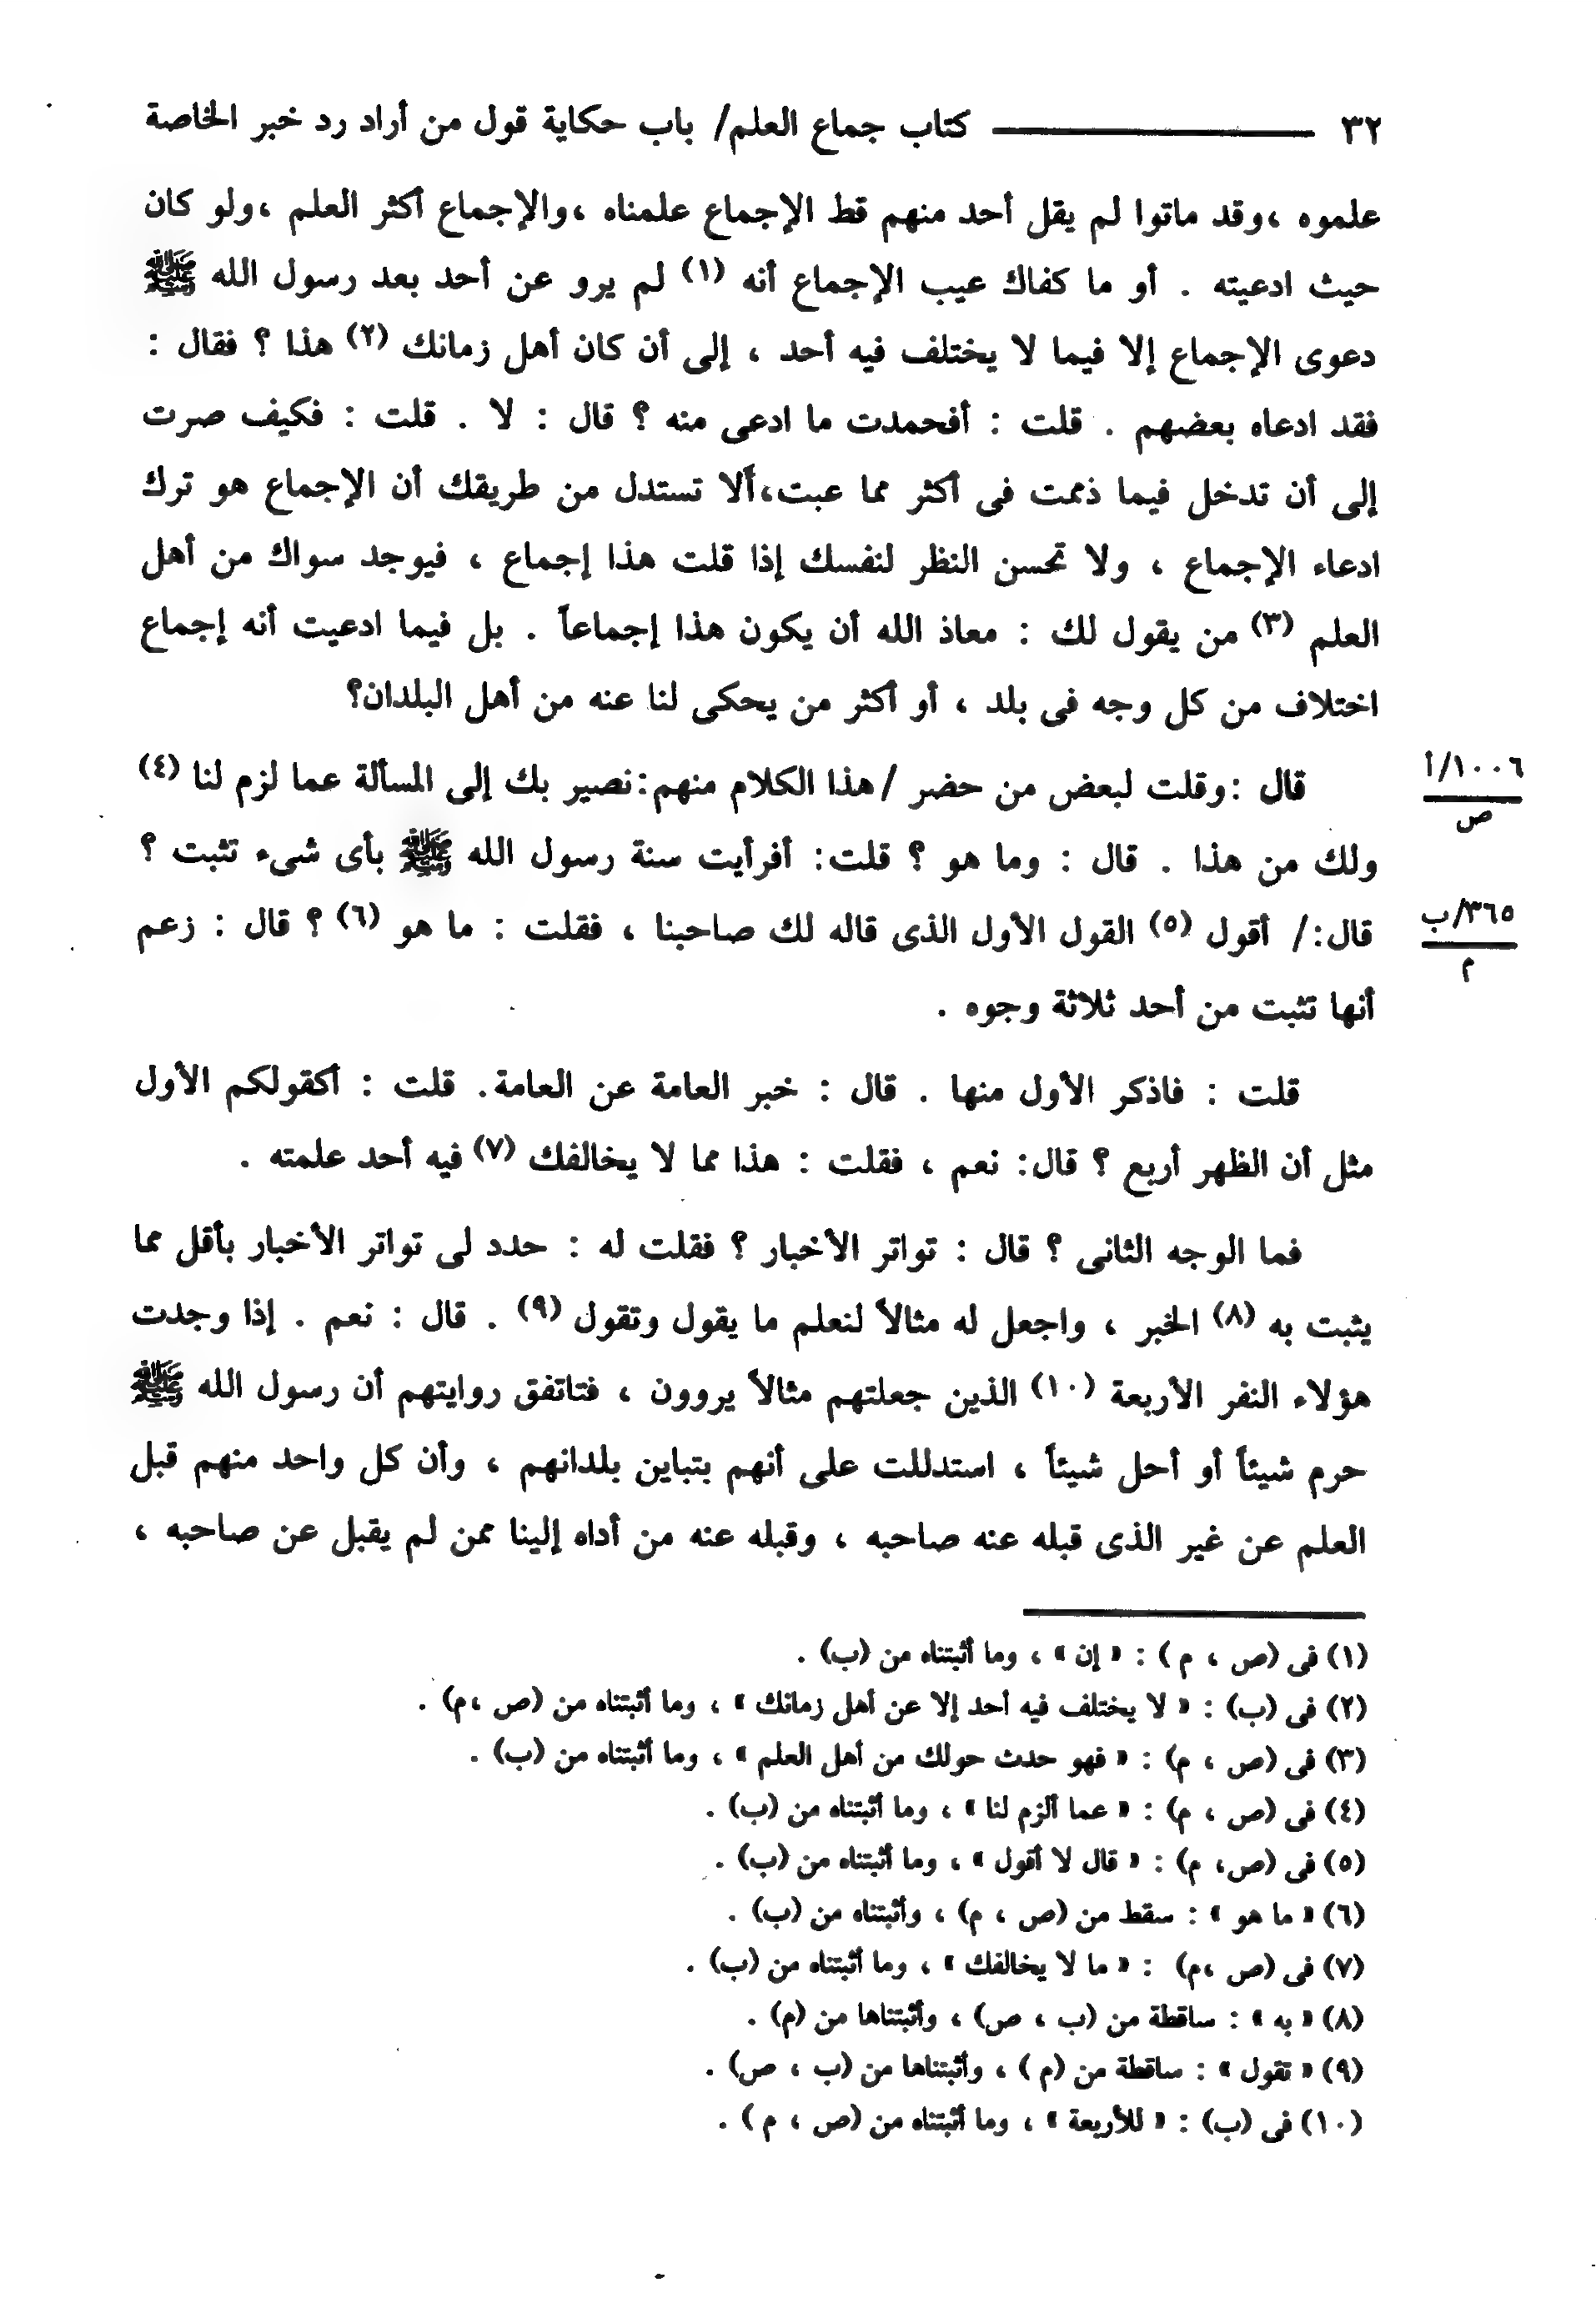 ٣٢ ــــــــــــــــــ كتاب جماع العلم/ باب حكاية قول من أراد رد خبر الخاصة
علموه ،وقد ماتوا لم يقل أحد منهم قط الإجماع علمناه ،والإجماع أكثر العلم ،ولو كان
حيث ادعيته . أو ما كفاك عيب الإجماع أنه (١) لم يرو عن أحد بعد رسول الله ﷺ
دعوى الإجماع إلا فيما لا يختلف فيه أحد ، إلى أن كان أهل زمانك (٢) هذا ؟ فقال :
فقد ادعاه بعضهم . قلت : أفحمدت ما ادعى منه ؟ قال : لا . قلت : فكيف صرت
إلى أن تدخل فيما ذممت فى أكثر مما عبت،ألا تستدل من طريقك أن الإجماع هو ترك
ادعاء الإجماع ، ولا تحسن النظر لنفسك إذا قلت هذا إجماع ، فيوجد سواك من أهل
العلم (٣) من يقول لك : معاذ الله أن يكون هذا إجماعاً . بل فيما ادعيت أنه إجماع
اختلاف من كل وجه فى بلد ، أو أكثر من يحكى لنا عنه من أهل البلدان؟
١٠٠٦/أ
ص
قال :وقلت لبعض من حضر /هذا الكلام منهم:نصير بك إلى المسألة عما لزم لنا (٤)
ولك من هذا . قال : وما هو ؟ قلت: أفرأيت سنة رسول الله ﷺ بأى شىء تثبت ؟
٣٦٥/ب
م
قال:/ أقول (٥) القول الأول الذى قاله لك صاحبنا ، فقلت : ما هو (٦) ؟ قال : زعم
أنها تثبت من أحد ثلاثة وجوه .
قلت : فاذكر الأول منها . قال : خبر العامة عن العامة. قلت : أكقولكم الأول
مثل أن الظهر أربع ؟ قال: نعم ، فقلت : هذا مما لا يخالفك (٧) فيه أحد علمته .
فما الوجه الثانى ؟ قال : تواتر الأخبار ؟ فقلت له : حدد لى تواتر الأخبار بأقل مما
يثبت به (٨) الخبر ، واجعل له مثالاً لنعلم ما يقول وتقول (٩) . قال : نعم . إذا وجدت
هؤلاء النفر الأربعة (١٠) الذين جعلتهم مثالاً يروون ، فتاتفق روايتهم أن رسول الله ﷺ
حرم شيئاً أو أحل شيئاً ، استدللت على أنهم بتباين بلدانهم ، وأن كل واحد منهم قبل
العلم عن غير الذى قبله عنه صاحبه ، وقبله عنه من أداه إلينا ممن لم يقبل عن صاحبه ،
(١) فى (ص ، م ) : « إن » ، وما أثبتناه من (ب) .
(٢) فى (ب) : « لا يختلف فيه أحد إلا عن أهل زمانك » ، وما أثبتناه من (ص ،م) .
(٣) فى (ص ، م) : « فهو حدث حولك من أهل العلم » ، وما أثبتناه من (ب) .
(٤) فى (ص ، م) : « عما ألزم لنا » ، وما أثبتناه من (ب) .
(٥) فى (ص، م) : « قال لا أقول » ، وما أثبتناه من (ب) .
(٦) « ما هو » : سقط من (ص ، م) ، وأثبتناه من (ب) .
(٧) فى (ص ،م) : « ما لا يخالفك » ، وما أثبتناه من (ب) .
(٨) « به » : ساقطة من (ب ، ص) ، وأثبتناها من (م) .
(٩) « تقول » : ساقطة من (م ) ، وأثبتناها من (ب ، ص) .
(١٠) فى (ب) : « للأربعة » ، وما أثبتناه من (ص ، م ) .